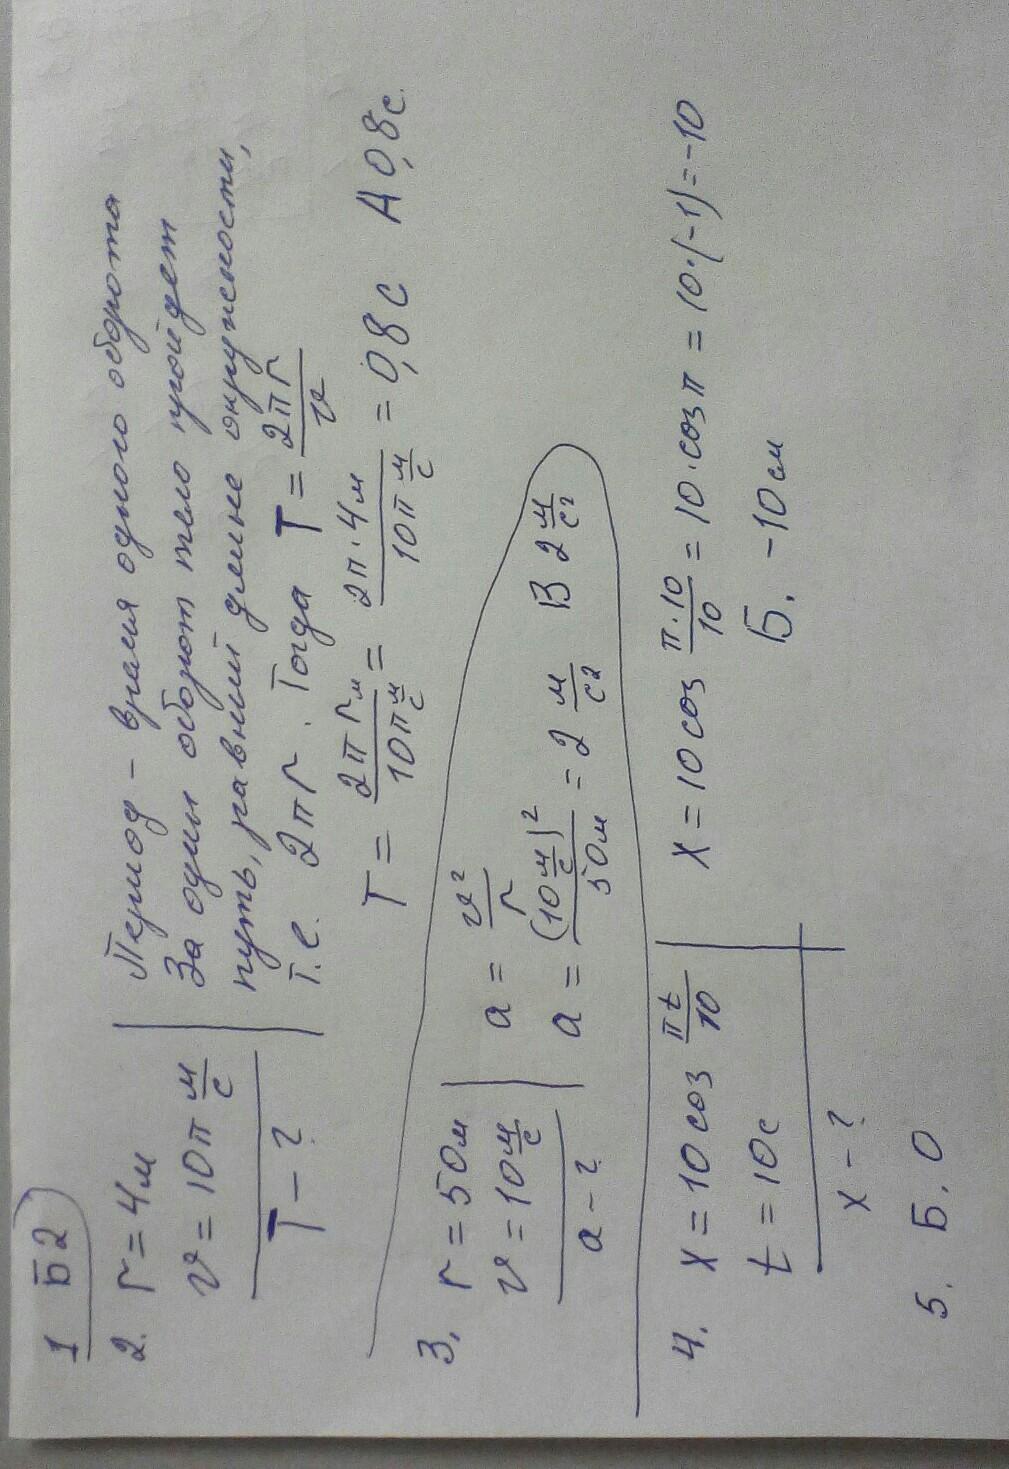 1 Б2
2. r = 4м
v = 10π м/с
T - ?
Период - время одного оборота
За один оборот тело пройдет
путь, равный длине окружности,
т.е. 2πr. Тогда T = 2πr/v
T = 2πr м/10π м/с = 2π·4м/10π м/с = 0,8 с А 0,8с.
3. r = 50м
v = 10 м/с
a - ?
a = v²/r
a = (10 м/с)²/50м = 2 м/с² В 2 м/с²
4. x = 10 cos πt/10
t = 10с
x - ?
x = 10 cos π·10/10 = 10·cos π = 10·(-1) = -10
Б. -10см
5. Б. 0